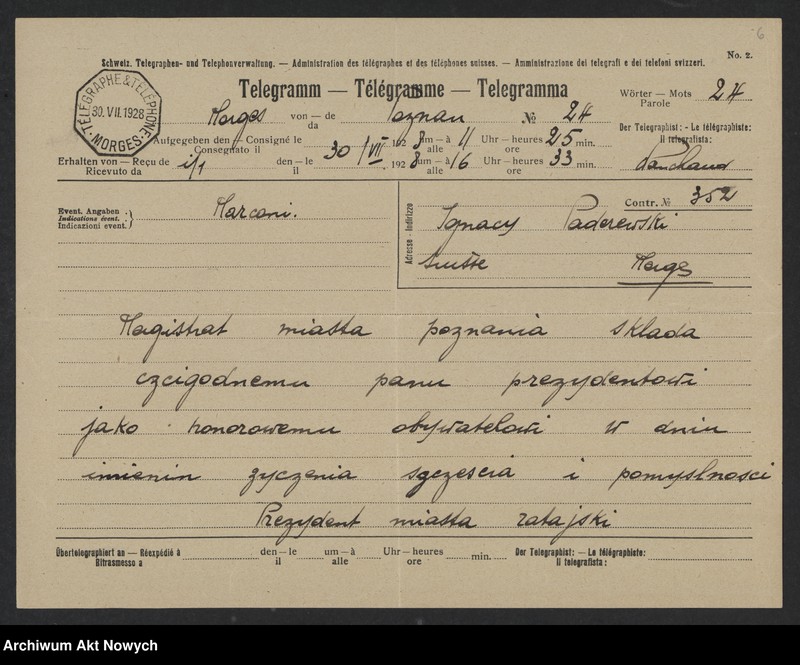 6
No. 2.
Schweiz. Telegraphen- und Telephonverwaltung. — Administration des télégraphes et des téléphones suisses. — Amministrazione dei telegrafi e dei telefoni svizzeri.
Telegramm — Télégramme — Telegramma
Wörter — Mots 24
Parole
TÉLÉGRAPHE & TÉLÉPHONE
30. VII. 1928
MORGES
Morges von — de Poznan № 24
da
Der Telegraphist: - Le télégraphiste:
Il telegrafista:
Aufgegeben den — Consigné le 30/VII 1928 um — à 11 Uhr — heures 25 min.
Consegnato il alle ore
Erhalten von — Reçu de i/1 den — le 1928 um — à 16 Uhr — heures 33 min.
Ricevuto da il alle ore
Contr. № 352
Event. Angaben
Indications évent.
Indicazioni event.
Marconi.
Adresse - Indirizzo
Ignacy Paderewski
Suisse Morges
Magistrat miasta poznania sklada
czcigodnemu panu prezydentowi
jako honorowemu obywatelowi w dniu
imienin zyczenia sczescia i pomyslnosci
Prezydent miasta ratajski
Übertelegraphiert an — Réexpédié à den — le um — à Uhr — heures min. Der Telegraphist: — Le télégraphiste:
Ritrasmesso a il alle ore Il telegrafista:
Archiwum Akt Nowych